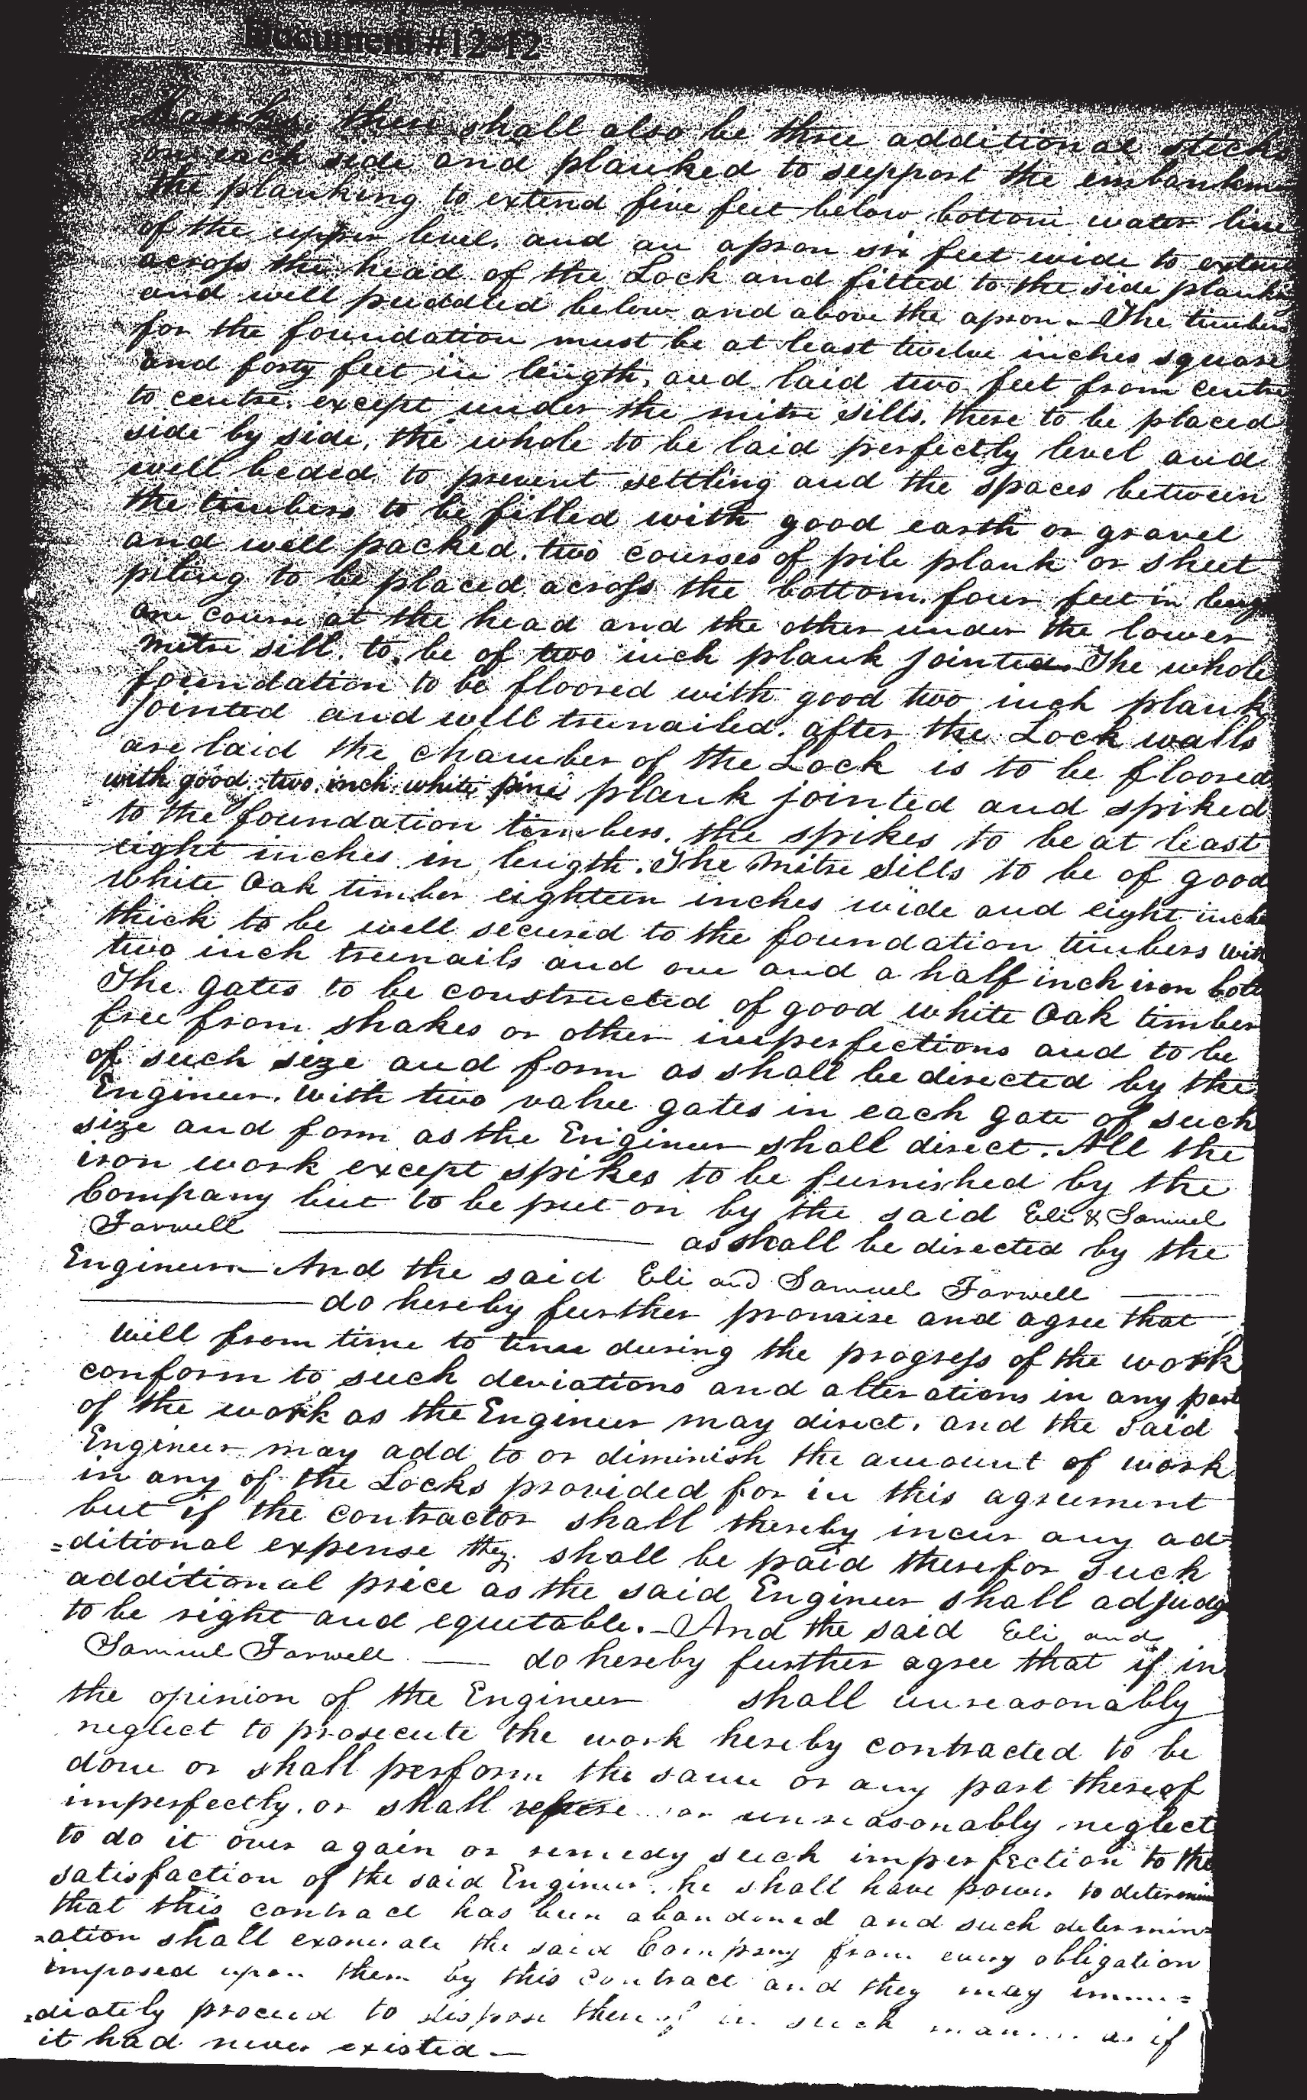 Document #12-12
there shall also be three additional sticks
on each side and planked to support the embankme
the planking to extend five feet below bottom water line
of the upper level, and an apron six feet wide to exten
across the head of the Lock and fitted to the side planki
and well puddled below and above the apron. The timbers
for the foundation must be at least twelve inches square
and forty feet in length, and laid two feet from centre
to centre, except under the mitre sills, these to be placed
side by side, the whole to be laid perfectly level and
well beded to prevent settling and the spaces between
the timbers to be filled with good earth or gravel
and well packed, two courses of pile plank or sheet
piling to be placed across the bottom, four feet in leng
one course at the head and the other under the lower
mitre sill, to be of two inch plank jointed. The whole
foundation to be floored with good two inch plank
jointed and well treenailed. after the Lock walls
are laid the chamber of the Lock is to be floored
with good two inch white pine plank jointed and spiked
to the foundation timbers, the spikes to be at least
eight inches in length. The Mitre Sills to be of good
White Oak timber eighteen inches wide and eight inch
thick to be well secured to the foundation timbers with
two inch treenails and one and a half inch iron bolts
The gates to be constructed of good white Oak timber
free from shakes or other imperfections and to be
of such size and form as shall be directed by the
Engineer. With two valve gates in each gate of such
size and form as the Engineer shall direct. All the
iron work except spikes to be furnished by the
Company but to be put on by the said Eli & Samuel
Farwell as shall be directed by the
Engineer And the said Eli and Samuel Farwell
do hereby further promise and agree that
will from time to time during the progress of the work
conform to such deviations and alterations in any part
of the work as the Engineer may direct, and the said
Engineer may add to or diminish the amount of work
in any of the Locks provided for in this agreement
but if the contractor shall thereby incur any ad-
=ditional expense they shall be paid therefor such
additional price as the said Engineer shall adjudge
to be right and equitable. - And the said Eli and
Samuel Farwell — do hereby further agree that if in
the opinion of the Engineer shall unreasonably
neglect to prosecute the work hereby contracted to be
done or shall perform the same or any part thereof
imperfectly, or shall refuse or unreasonably neglect
to do it over again or remedy such imperfection to the
satisfaction of the said Engineer, he shall have power to determine
that this contract has been abandoned and such determin=
=ation shall exonerate the said Company from every obligation
imposed upon them by this contract and they may imme=
=diately proceed to dispose thereof in such manner as if
it had never existed —